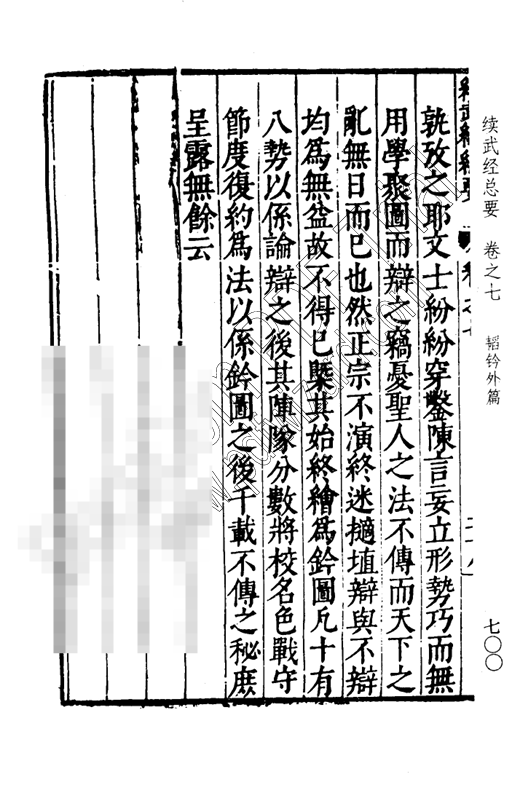 续武经总要 卷之七 韬钤外篇
七〇〇
孰攷之耶文士紛紛穿鑿陳言妄立形勢巧而無
用學聚圖而辯之竊憂聖人之法不傳而天下之
亂無日而已也然正宗不演終迷擿埴辯與不辯
均為無益故不得已槩其始終繪為鈐圖凡十有
八勢以係論辯之後其陣隊分數將校名色戰守
節度復約為法以係鈐圖之後千載不傳之秘庶
呈露無餘云